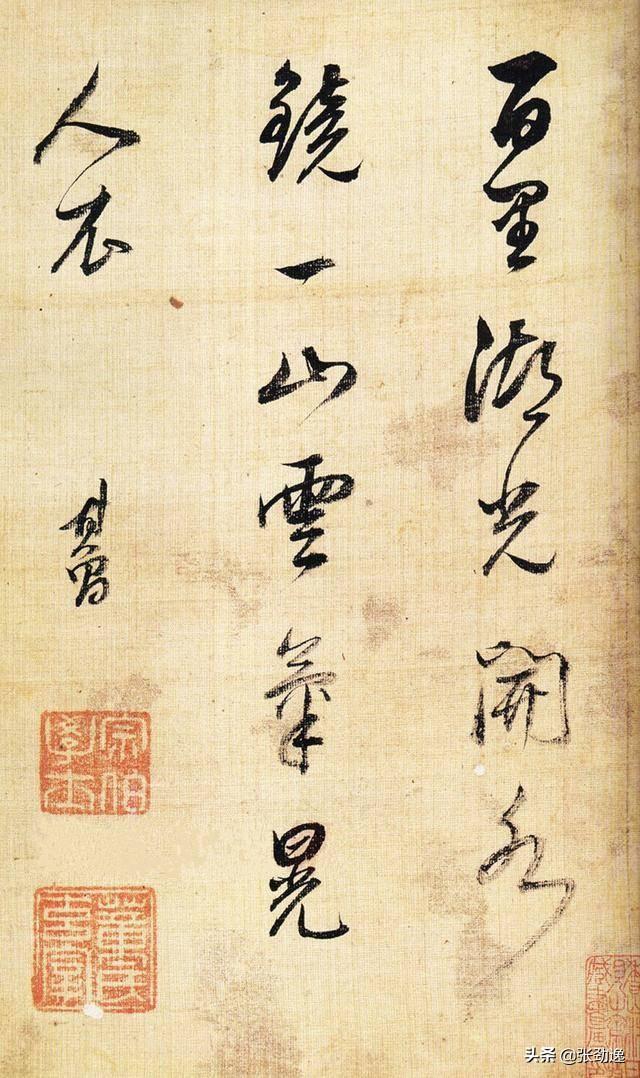 百里湖光開水
鏡一山雲氣晃
人衣
其昌
宗伯學士
董氏玄宰
头条 @张劲逸